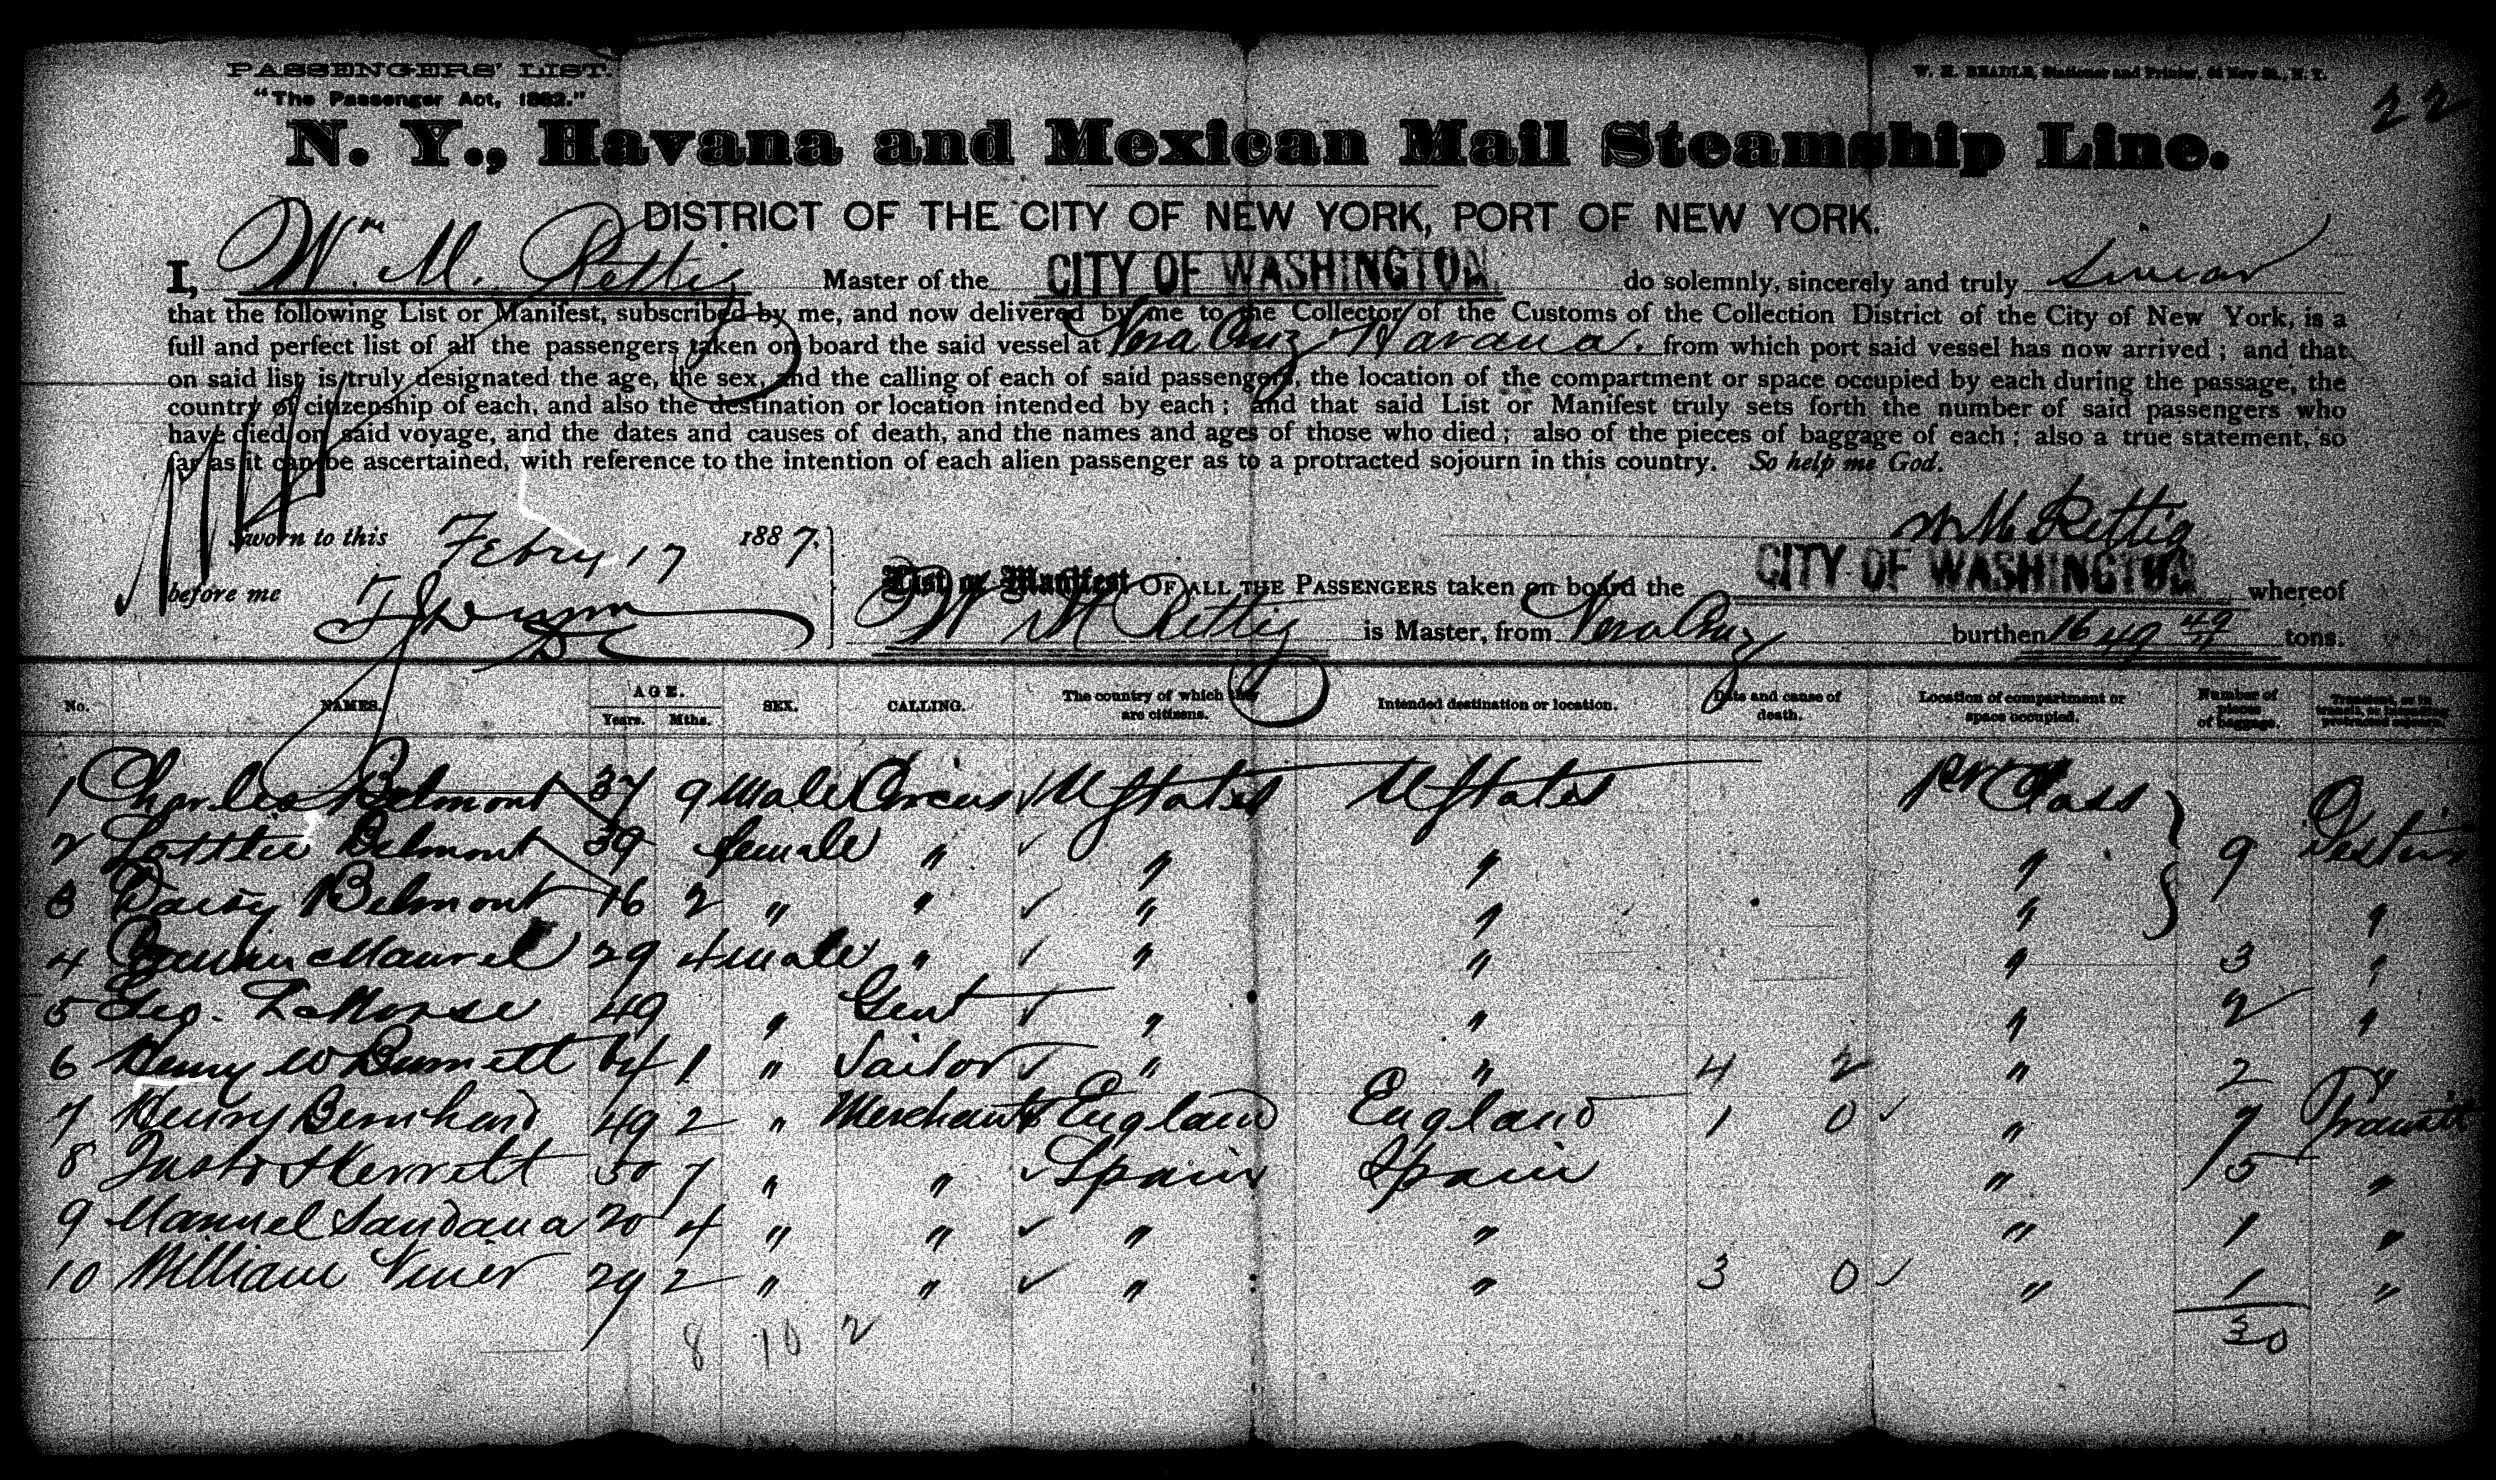 PASSENGERS' LIST.
"The Passenger Act, 1882."
W. H. BEADLE, Stationer and Printer, New St., N. Y.
22
N. Y., Havana and Mexican Mail Steamship Line.
DISTRICT OF THE CITY OF NEW YORK, PORT OF NEW YORK.
I, Wm. M. Rettig Master of the CITY OF WASHINGTON do solemnly, sincerely and truly Swear
that the following List or Manifest, subscribed by me, and now delivered by me to the Collector of the Customs of the Collection District of the City of New York, is a
full and perfect list of all the passengers taken on board the said vessel at Vera Cruz Havana. from which port said vessel has now arrived; and that
on said list is truly designated the age, the sex, and the calling of each of said passengers, the location of the compartment or space occupied by each during the passage, the
country of citizenship of each, and also the destination or location intended by each; and that said List or Manifest truly sets forth the number of said passengers who
have died on said voyage, and the dates and causes of death, and the names and ages of those who died; also of the pieces of baggage of each; also a true statement, so
far as it can be ascertained, with reference to the intention of each alien passenger as to a protracted sojourn in this country. So help me God.
Wm M Rettig
Sworn to this Febry 17 1887.
before me
List or Manifest OF ALL THE PASSENGERS taken on board the CITY OF WASHINGTON whereof
W M Rettig is Master, from Vera Cruz burthen 1649 49 tons.
No. NAMES. AGE. Years. Mths. SEX. CALLING. The country of which they are citizens. Intended destination or location. Date and cause of death. Location of compartment or space occupied. Number of pieces of baggage. Transient, or in transit, or intending protracted sojourn.
1 Charles Belmont 37 9 Male Circus UStates UStates Class
2 Lottie Belmont 39 female " " " " 9
3 Daisy Belmont 16 2 " " " " " "
4 Maurel 29 4 male " " " " 3 "
5 Geo. Morse 49 " Gent " " " 2 "
6 Henry W Burnett 64 1 " Sailor " " 4 2 " 2 "
7 Henry Bernhard 49 2 " Merchant England England 1 0 " 7 Transit
8 Justo Herrett 50 7 " " Spain Spain " 5 "
9 Manuel Sandaua 20 4 " " " " " 1 "
10 William Viner 29 2 " " " " 3 0 " 1 "
8 10 2 30